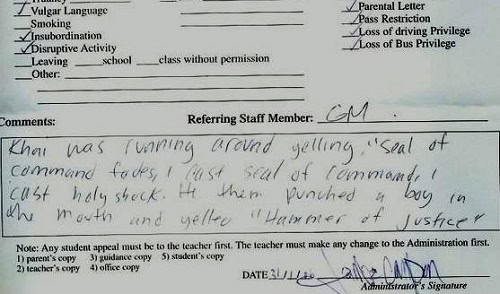 Vulgar Language
Smoking
Insubordination
Disruptive Activity
Leaving school class without permission
Other:
Parental Letter
Pass Restriction
Loss of driving Privilege
Loss of Bus Privilege
Referring Staff Member: GM
Comments:
Khai was running around yelling, "Seal of
command fades, I cast seal of command, I
cast holy shock. He them punched a boy in
the mouth and yelled "Hammer of Justice"
Note: Any student appeal must be to the teacher first. The teacher must make any change to the Administration first.
1) parent's copy 3) guidance copy 5) student's copy
2) teacher's copy 4) office copy
DATE
Administrator's Signature